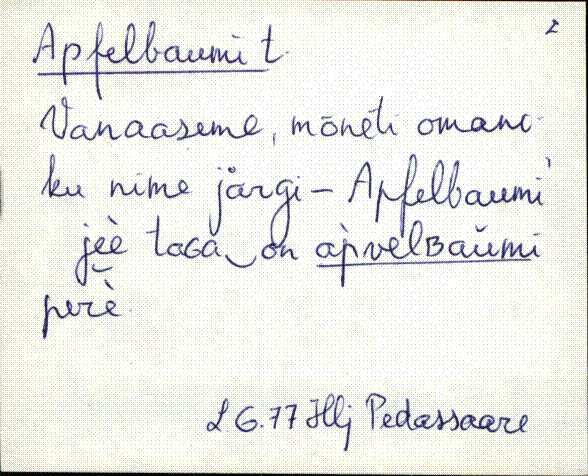 2
Apfelbaumi t.
Vanaaseme, mõneti omani-
ku nime järgi – Apfelbaumi
jèe taGa on àpvelBaùmi
perè.
L G. 77 Hlj Pedassaare